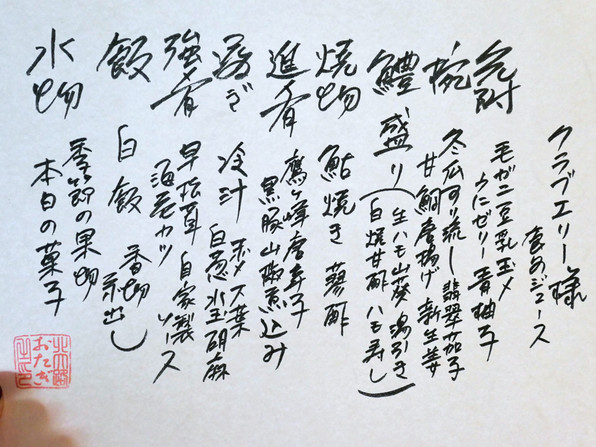 クラブエリー様
ジュース
先附
毛ガニ豆乳玉〆
うにゼリー 青柚子
椀 冬瓜すり流し 翡翠茄子
甘鯛唐揚げ 新生姜
鱧盛り(生ハモ山葵 湯引き
白焼甘酢 ハモ寿し)
焼物 鮎焼き 蓼酢
進肴 鷹ヶ峰唐辛子
黒豚山椒煮込み
凌ぎ 冷汁
胡麻
強肴 早松茸 自家製ソース
海老カツ
飯 白飯 香物 赤出し
水物 季節の果物
本日の菓子
おたぎ